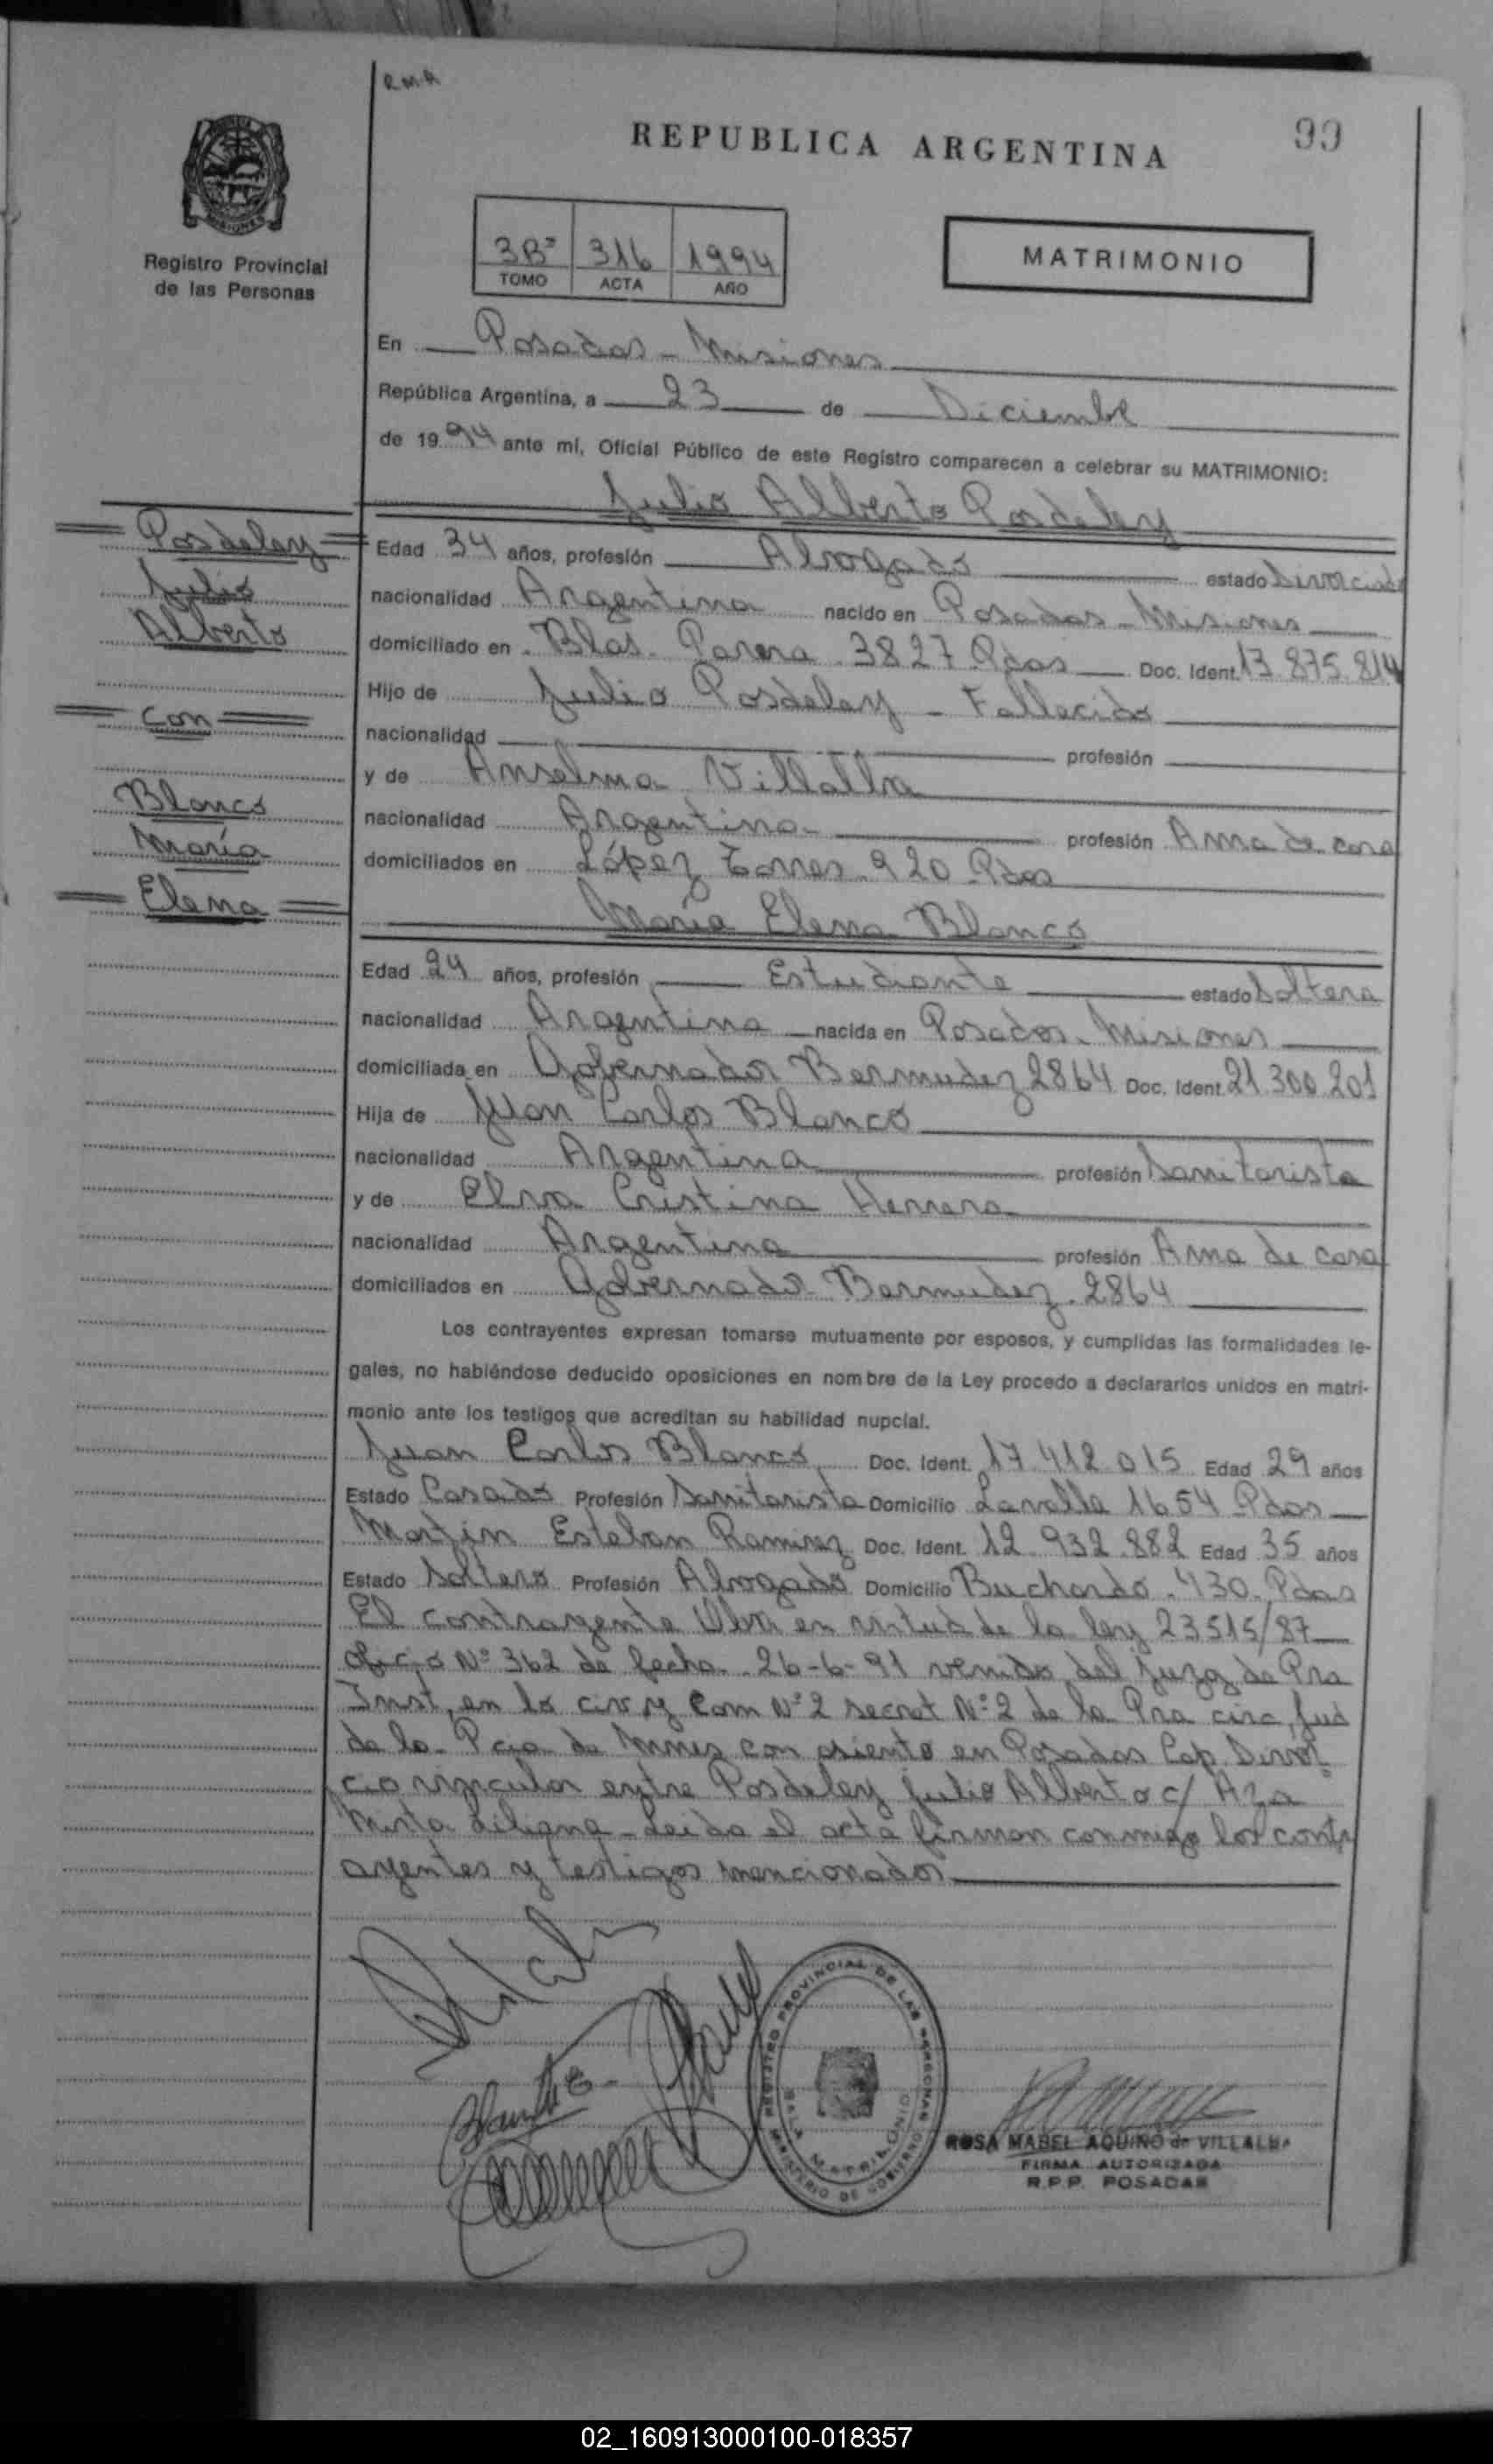 RMA
REPUBLICA ARGENTINA
99
Registro Provincial
de las Personas
3Bº 316 1994
TOMO ACTA AÑO
MATRIMONIO
En Posadas - Misiones
República Argentina, a 23 de Diciembre
de 1994 ante mí, Oficial Público de este Registro comparecen a celebrar su MATRIMONIO:
Julio Alberto Posdeley
Posdeley
Julio
Alberto
con
Blanco
María
Elena
Edad 34 años, profesión Abogado estado Divorciado
nacionalidad Argentina nacido en Posadas - Misiones
domiciliado en Blas Parera 3827 Pdas Doc. Ident. 13.875.814
Hijo de Julio Posdeley - Fallecido
nacionalidad profesión
y de Anselma Villalba
nacionalidad Argentina profesión Ama de casa
domiciliados en López Torres 920 Pdas
María Elena Blanco
Edad 24 años, profesión Estudiante estado Soltera
nacionalidad Argentina nacida en Posadas - Misiones
domiciliada en Gobernador Bermudez 2864 Doc. Ident. 21.300.201
Hija de Juan Carlos Blanco
nacionalidad Argentina profesión Sanitarista
y de Elva Cristina Herrera
nacionalidad Argentina profesión Ama de casa
domiciliados en Gobernador Bermudez 2864
Los contrayentes expresan tomarse mutuamente por esposos, y cumplidas las formalidades le-
gales, no habiéndose deducido oposiciones en nombre de la Ley procedo a declararlos unidos en matri-
monio ante los testigos que acreditan su habilidad nupcial.
Juan Carlos Blanco Doc. Ident. 17.412.015 Edad 29 años
Estado Casado Profesión Sanitarista Domicilio Lavalle 1654 Pdas
Martín Esteban Ramirez Doc. Ident. 12.932.882 Edad 35 años
Estado Soltero Profesión Abogado Domicilio Buchardo 430 Pdas
El contrayente en virtud de la ley 23515/87
oficio Nº 362 de fecha 26-6-91 venido del Juzg de Pra
Inst, en lo civ y Com Nº 2 secret Nº 2 de la Pra circ, Jud
de la Pcia de Mnes con asiento en Posadas Cap. Divor
cio vincular entre Posdeley Julio Alberto c/ Aza
Mirta Liliana - Leida el acta firman conmigo los contr
ayentes y testigos mencionados
REGISTRO PROVINCIAL DE LAS PERSONAS
SALA MATRIMONIO
MINISTERIO DE GOBIERNO
ROSA MABEL AQUINO de VILLALBA
FIRMA AUTORIZADA
R.P.P. POSADAS
02_160913000100-018357